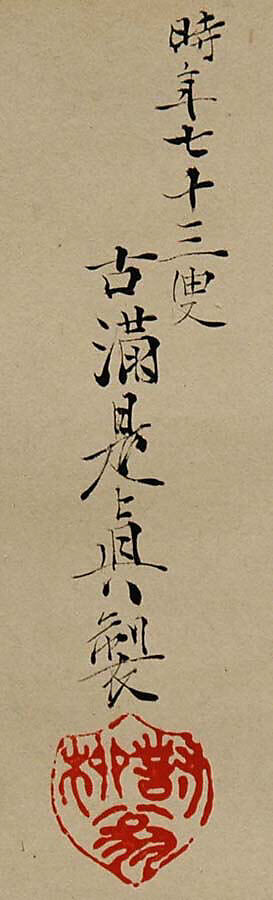 時年七十三叟
古滿是真製